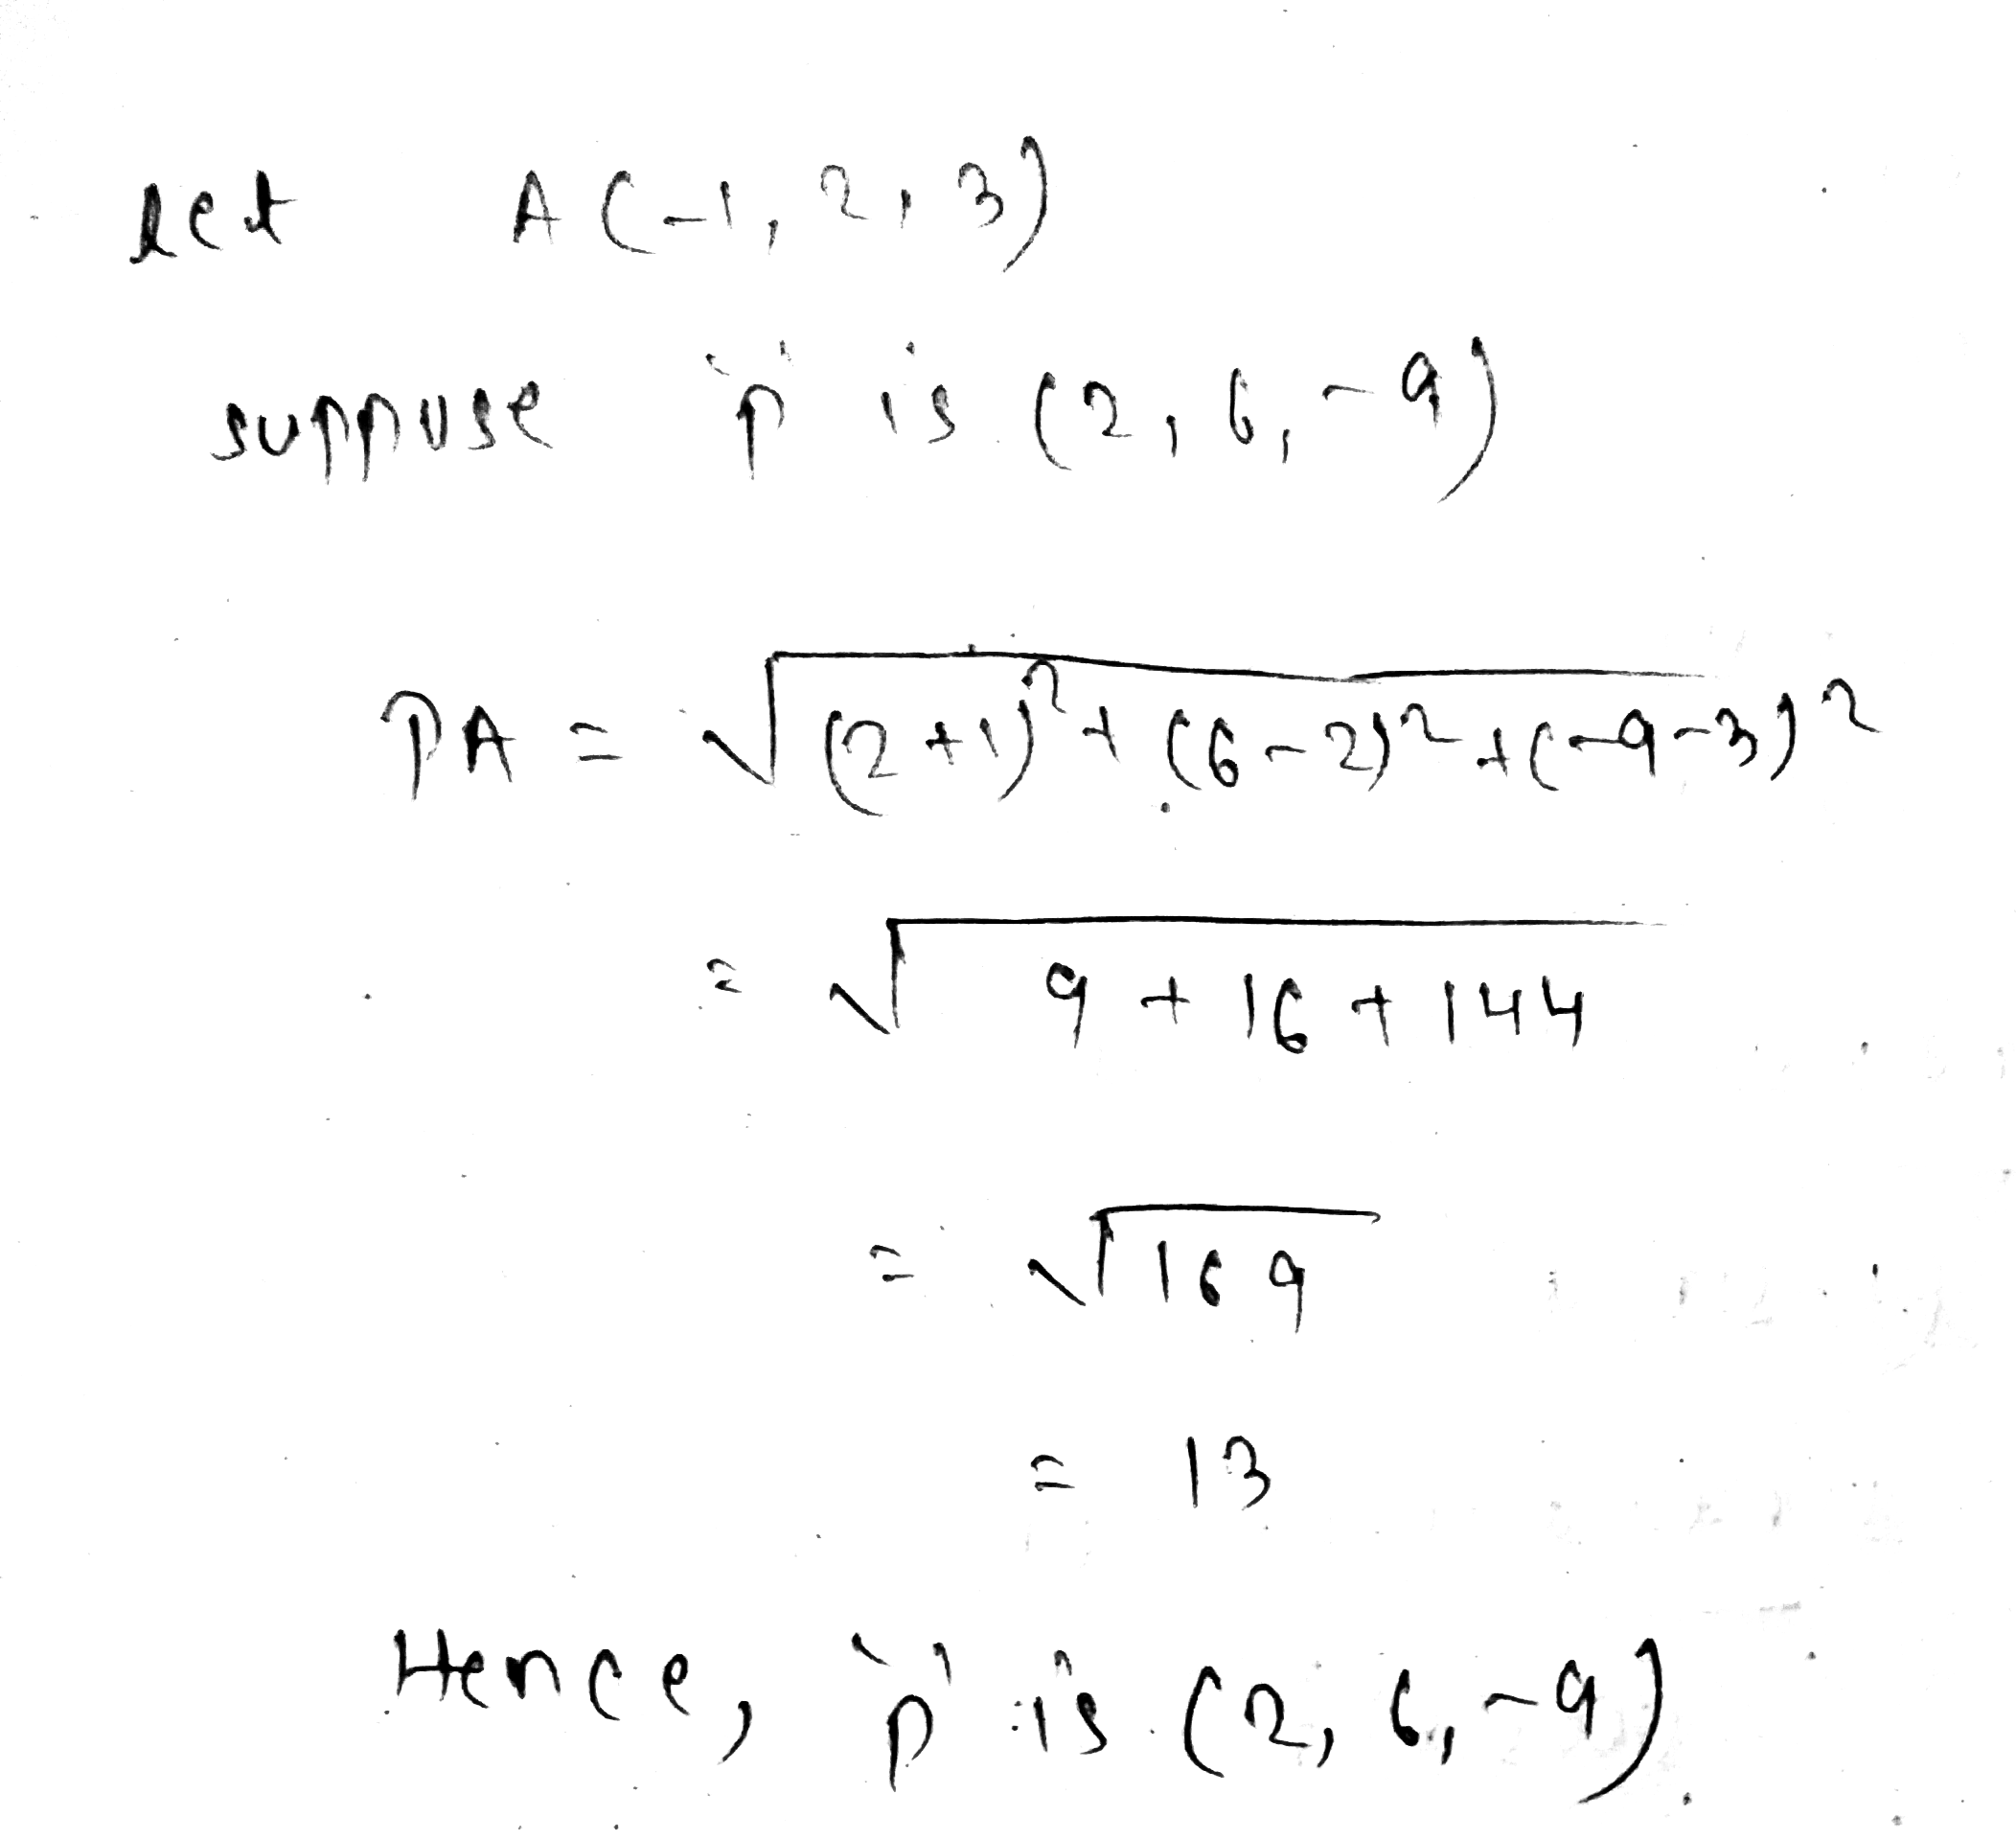 let A(-1, 2, 3)
suppose 'p' is (2, 6, -9)
PA = √(2+1)² + (6-2)² + (-9-3)²
= √9 + 16 + 144
= √169
= 13
Hence, 'p' is (2, 6, -9)